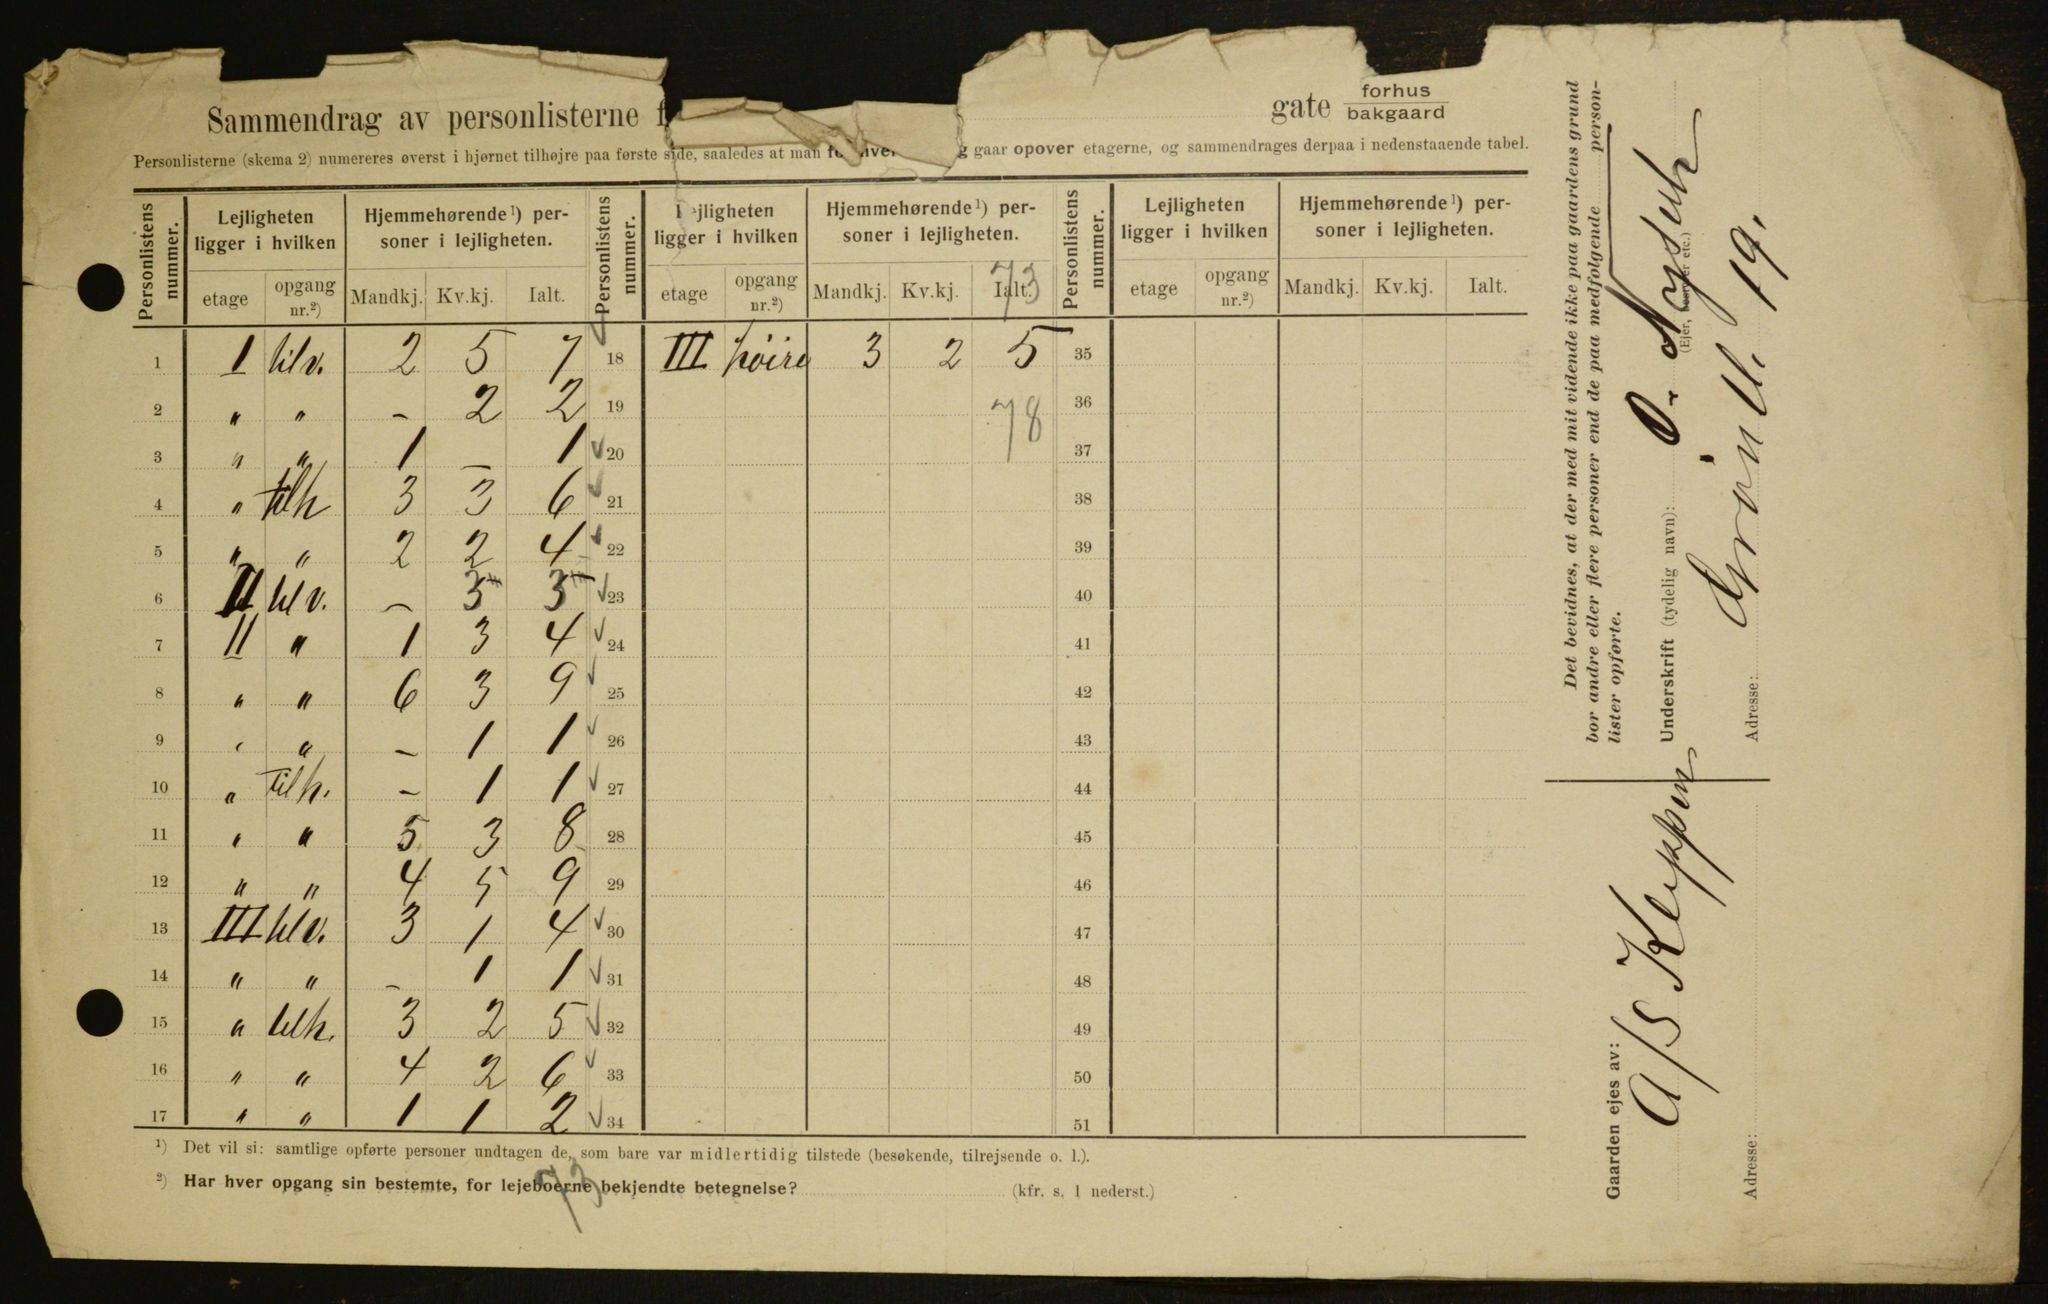 Sammendrag av personlisterne
gate forhus
bakgaard
Personlisterne (skema 2) numereres øverst i hjørnet tilhøjre paa første side, saaledes at man gaar opover etagerne, og sammendrages derpaa i nedenstaaende tabel.
Personlistens nummer. Lejligheten ligger i hvilken Hjemmehørende ¹) personer i lejligheten. Personlistens nummer. Lejligheten ligger i hvilken Hjemmehørende ¹) personer i lejligheten. Personlistens nummer. Lejligheten ligger i hvilken Hjemmehørende ¹) personer i lejligheten.
etage opgang nr.²) Mandkj. Kv.kj. Ialt. etage opgang nr.²) Mandkj. Kv.kj. Ialt. etage opgang nr.²) Mandkj. Kv.kj. Ialt.
73
1 I til v. 2 5 7 18 III høire 3 2 5 35
2 " " - 2 2 19 78 36
3 " " 1 - 1 20 37
4 " tilh 3 3 6 21 38
5 " " 2 2 4 22 39
6 II til v. - 3 3 23 40
7 II " 1 3 4 24 41
8 " " 6 3 9 25 42
9 " " - 1 1 26 43
10 " til h. - 1 1 27 44
11 " " 5 3 8 28 45
12 " " 4 5 9 29 46
13 III til v. 3 1 4 30 47
14 " " - 1 1 31 48
15 " til h. 3 2 5 32 49
16 " " 4 2 6 33 50
17 " " 1 1 2 34 51
¹) Det vil si: samtlige opførte personer undtagen de, som bare var midlertidig tilstede (besøkende, tilrejsende o. l.).
²) Har hver opgang sin bestemte, for lejeboerne bekjendte betegnelse? (kfr. s. 1 nederst.)
73
Det bevidnes, at der med mit vidende ikke paa gaardens grund
bor andre eller flere personer end de paa medfølgende person-
lister opførte.
Underskrift (tydelig navn): O. Nyseth
(Ejer, bestyrer etc.)
Adresse: Grønl. 19.
Gaarden ejes av: A/S Kleppen
Adresse: